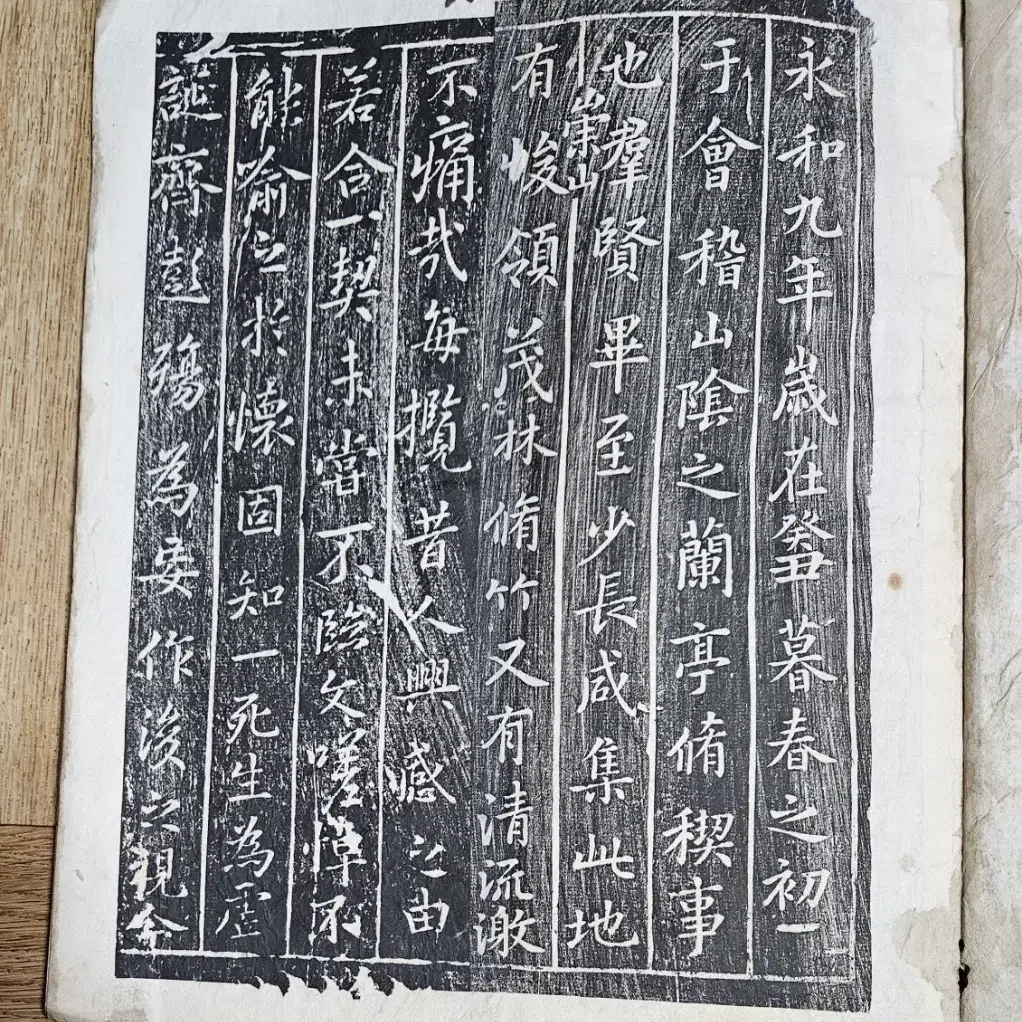 永和九年歲在癸丑暮春之初一
于會稽山陰之蘭亭脩稧事
也羣賢畢至少長咸集此地
有崇山峻領茂林脩竹又有清流激
不痛哉每攬昔人興感之由
若合一契未嘗不臨文嗟悼不
能喻之於懷固知一死生為虛
誕齊彭殤為妄作後之視今